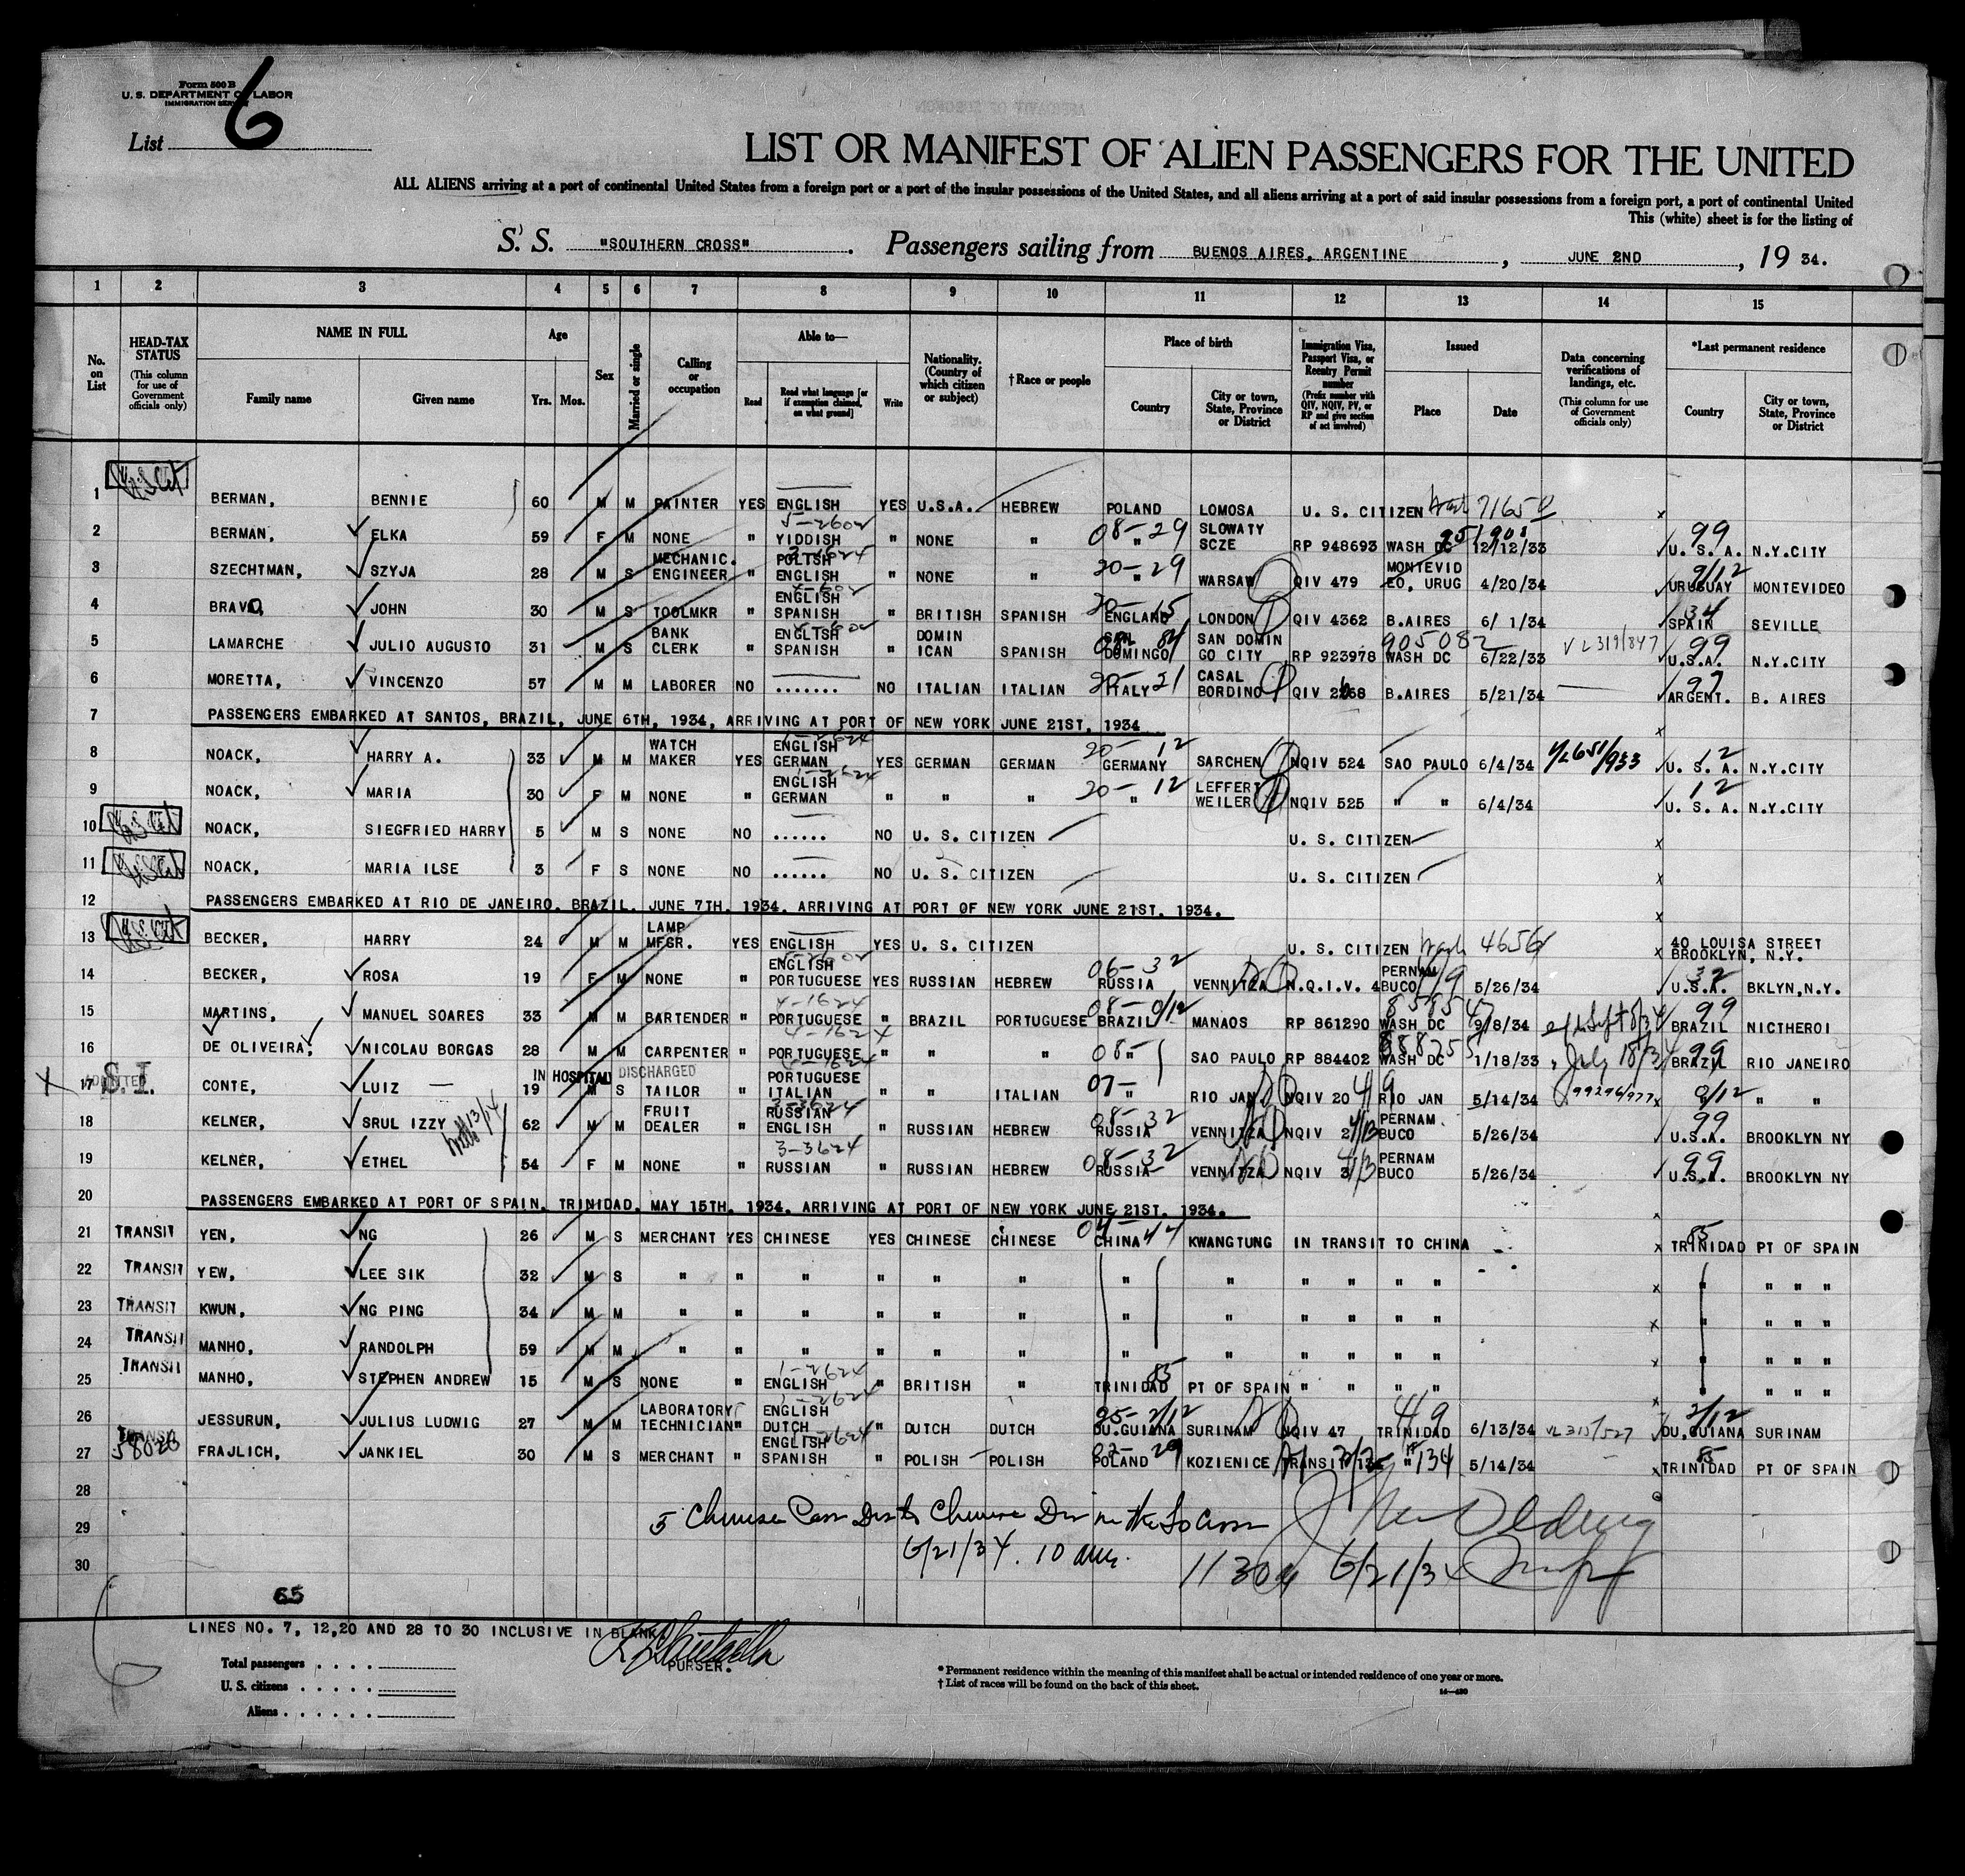 Form 500 B
U. S. DEPARTMENT OF LABOR
IMMIGRATION SERVICE
List 6
LIST OR MANIFEST OF ALIEN PASSENGERS FOR THE UNITED
ALL ALIENS arriving at a port of continental United States from a foreign port or a port of the insular possessions of the United States, and all aliens arriving at a port of said insular possessions from a foreign port, a port of continental United
This (white) sheet is for the listing of
S. S. "SOUTHERN CROSS". Passengers sailing from BUENOS AIRES, ARGENTINE, JUNE 2ND, 19 34.
1 2 3 4 5 6 7 8 9 10 11 12 13 14 15
No. on List
HEAD-TAX STATUS (This column for use of Government officials only)
NAME IN FULL Family name Given name
Age Yrs. Mos.
Sex
Married or single
Calling or occupation
Able to— Read Read what language [or if exemption claimed, on what ground] Write
Nationality. (Country of which citizen or subject)
†Race or people
Place of birth Country City or town, State, Province or District
Immigration Visa, Passport Visa, or Reentry Permit number (Prefix number with QIV, NQIV, PV, or RP and give section of act involved)
Issued Place Date
Data concerning verifications of landings, etc. (This column for use of Government officials only)
*Last permanent residence Country City or town, State, Province or District
1 BERMAN, BENNIE 60 M M PAINTER YES ENGLISH YES U.S.A. HEBREW POLAND LOMOSA U. S. CITIZEN
2 BERMAN, ELKA 59 F M NONE " YIDDISH " NONE " 08-29 " SLOWATY SCZE RP 948693 WASH DC 12/12/33 99 U. S. A. N.Y.CITY
3 SZECHTMAN, SZYJA 28 M S MECHANIC. ENGINEER " POLISH ENGLISH " NONE " 20-29 " WARSAW QIV 479 MONTEVID EO, URUG 4/20/34 9/12 URUGUAY MONTEVIDEO
4 BRAVO, JOHN 30 M S TOOLMKR " ENGLISH SPANISH " BRITISH SPANISH ENGLAND LONDON QIV 4362 B.AIRES 6/ 1/34 34 SPAIN SEVILLE
5 LAMARCHE JULIO AUGUSTO 31 M S BANK CLERK " ENGLISH SPANISH " DOMIN ICAN SPANISH DOMINGO SAN DOMIN GO CITY RP 923978 905082 WASH DC 6/22/33 VL319/847 99 U.S.A. N.Y.CITY
6 MORETTA, VINCENZO 57 M M LABORER NO ....... NO ITALIAN ITALIAN ITALY 21 CASAL BORDINO QIV 2268 B.AIRES 5/21/34 97 ARGENT. B. AIRES
7 PASSENGERS EMBARKED AT SANTOS, BRAZIL, JUNE 6TH, 1934, ARRIVING AT PORT OF NEW YORK JUNE 21ST, 1934
8 NOACK, HARRY A. 33 M M WATCH MAKER YES ENGLISH GERMAN YES GERMAN GERMAN 20-12 GERMANY SARCHEN NQIV 524 SAO PAULO 6/4/34 12 U. S. A. N.Y.CITY
9 NOACK, MARIA 30 F M NONE " ENGLISH GERMAN " " " 20-12 " LEFFERT WEILER NQIV 525 " " 6/4/34 12 U. S. A. N.Y.CITY
10 NOACK, SIEGFRIED HARRY 5 M S NONE NO ...... NO U. S. CITIZEN U. S. CITIZEN
11 NOACK, MARIA ILSE 3 F S NONE NO ...... NO U. S. CITIZEN U. S. CITIZEN
12 PASSENGERS EMBARKED AT RIO DE JANEIRO. BRAZIL. JUNE 7TH. 1934. ARRIVING AT PORT OF NEW YORK JUNE 21ST. 1934.
13 BECKER, HARRY 24 M M LAMP MFGR. YES ENGLISH YES U. S. CITIZEN U. S. CITIZEN 40 LOUISA STREET BROOKLYN, N.Y.
14 BECKER, ROSA 19 F M NONE " ENGLISH PORTUGUESE YES RUSSIAN HEBREW 06-32 RUSSIA VENNITZA N.Q.I.V. 4 PERNAM BUCO 5/26/34 32 U.S.A. BKLYN,N.Y.
15 MARTINS, MANUEL SOARES 33 M M BARTENDER " 4-1624 PORTUGUESE " BRAZIL PORTUGUESE BRAZIL MANAOS RP 861290 WASH DC 9/8/34 99 BRAZIL NICTHEROI
16 DE OLIVEIRA, NICOLAU BORGAS 28 M M CARPENTER " 4-1624 PORTUGUESE " " " 08- " SAO PAULO RP 884402 WASH DC 1/18/33 July 18/34 99 BRAZIL RIO JANEIRO
17 ADMITTED S.I. IN HOSPITAL DISCHARGED CONTE, LUIZ 19 M S TAILOR " PORTUGUESE ITALIAN " " ITALIAN 07- " RIO JAN NQIV 20 49 RIO JAN 5/14/34 " "
18 KELNER, SRUL IZZY 62 M M FRUIT DEALER " RUSSIAN ENGLISH " RUSSIAN HEBREW 08-32 RUSSIA VENNITZA NQIV 2 PERNAM BUCO 5/26/34 99 U.S.A. BROOKLYN NY
19 KELNER, ETHEL 54 F M NONE " 3-3624 RUSSIAN " RUSSIAN HEBREW 08-32 RUSSIA VENNITZA NQIV 3 PERNAM BUCO 5/26/34 99 U.S.A. BROOKLYN NY
20 PASSENGERS EMBARKED AT PORT OF SPAIN, TRINIDAD, MAY 15TH, 1934. ARRIVING AT PORT OF NEW YORK JUNE 21ST. 1934.
21 TRANSIT YEN, NG 26 M S MERCHANT YES CHINESE YES CHINESE CHINESE 04-44 CHINA KWANGTUNG IN TRANSIT TO CHINA 85 TRINIDAD PT OF SPAIN
22 TRANSIT YEW, LEE SIK 32 M S " " " " " " " " " " " " " " " "
23 TRANSIT KWUN, NG PING 34 M M " " " " " " " " " " " " " " " "
24 TRANSIT MANHO, RANDOLPH 59 M M " " " " " " " " " " " " " " " "
25 TRANSIT MANHO, STEPHEN ANDREW 15 M S NONE " 1-2624 ENGLISH " BRITISH " 85 TRINIDAD PT OF SPAIN " " " " " " " "
26 JESSURUN, JULIUS LUDWIG 27 M M LABORATORY TECHNICIAN " ENGLISH DUTCH " DUTCH DUTCH DU.GUIANA SURINAM NQIV 47 49 TRINIDAD 6/13/34 VL315/527 2/12 DU.GUIANA SURINAM
27 TRANSIT 58026 FRAJLICH, JANKIEL 30 M S MERCHANT " ENGLISH SPANISH " POLISH POLISH POLAND 29 KOZIENICE TRANSIT " 5/14/34 85 TRINIDAD PT OF SPAIN
28
29 5 Chinese
6/21/34. 10 am.
30 6/21/34
65
LINES NO. 7, 12,20 AND 28 TO 30 INCLUSIVE IN BLANK
PURSER.
Total passengers
U. S. citizens
Aliens
*Permanent residence within the meaning of this manifest shall be actual or intended residence of one year or more.
†List of races will be found on the back of this sheet.
14—430